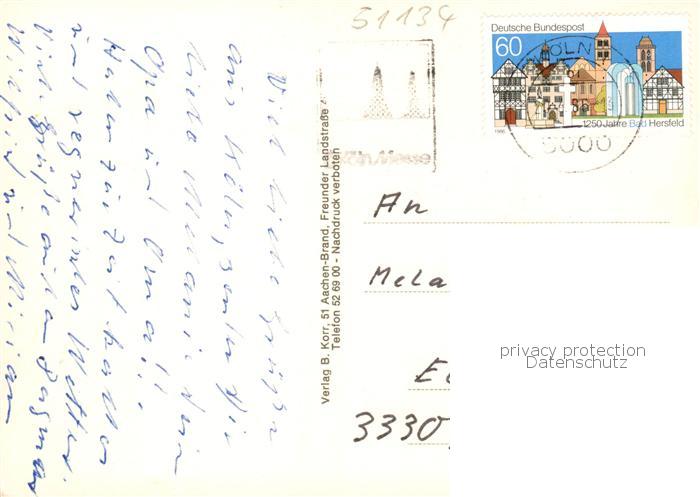 51134
Deutsche Bundespost
60
1250 Jahre Bad Hersfeld
1986
KÖLN
5000
Köln Messe
Viele liebe Grüße
aus Köln, sendet Dir
liebe Melanie Dein
Opa und Oma!!
Haben zur Zeit kaltes
und regnerisches Wetter.
Viele Grüße auch an Dagmar
Wilfried und Miriam
Verlag B. Korr, 51 Aachen-Brand, Freunder Landstraße
Telefon 52 69 00 - Nachdruck verboten
An
Mela
3330
privacy protection
Datenschutz